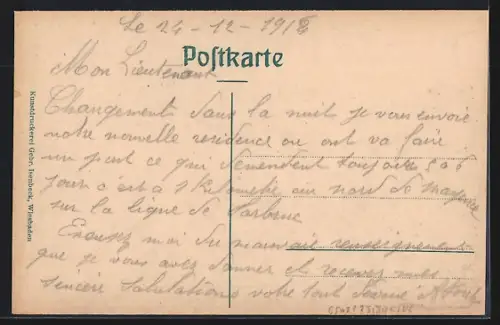 Le 24-12-1918
Postkarte
Mon Lieutenant
Changement dans la nuit je vous envoie
notre nouvelle residence ou ont va faire
un pont ce qui demendent toujour 5 a 6
jour c'est a 1 kilometre au nord de Mayence
sur la ligne de Sarbruc
Excusez moi du mauvais renseignement
que je vous avez donner et recevez mes
sincère salutations votre tout devoué
Kunstdruckerei Gebr. Isenbeck, Wiesbaden